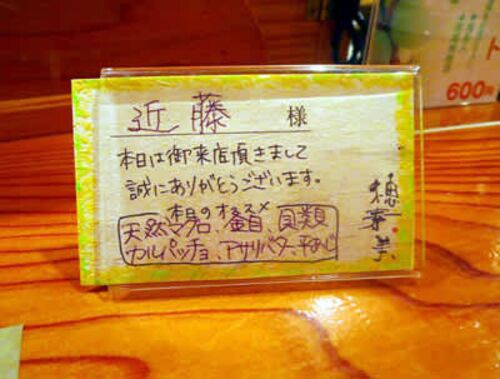 近藤 様
本日は御来店頂きまして
誠にありがとうございます。
本日のオススメ
天然マグロ、釜自、貝類
カルパッチョ、アサリバター、平あじ
穂
美
ト
600